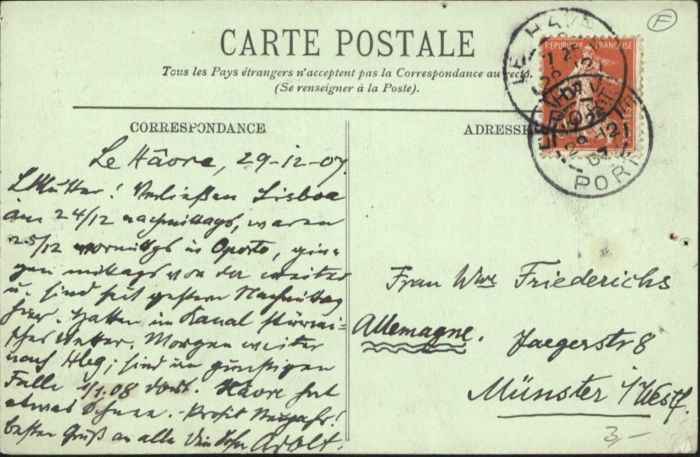 CARTE POSTALE
Tous les Pays étrangers n'acceptent pas la Correspondance au recto.
(Se renseigner à la Poste).
CORRESPONDANCE
ADRESSE
REPUBLIQUE FRANÇAISE
LE HAVRE
PORT
F
Le Hâvre, 29-12-07.
L. Mutter! Verließen Lisboa
am 24/12 nachmittags, waren
25/12 vormittgs in Oporto, gin-
gen mittags von da weiter
u. sind seit gestern Nachmittag
hier. Hatten im Kanal stürmi-
sches Wetter. Morgen weiter
nach Hbg; sind im günstigen
Falle 1/1.08 dort. Hâvre hat
etwas Schnee. - Prosit Neujahr!
besten Gruß an alle Dein Sohn Adolf.
Frau Wwe Friederichs
Allemagne.
Jaegerstr 8
Münster i/Westf.
3,-